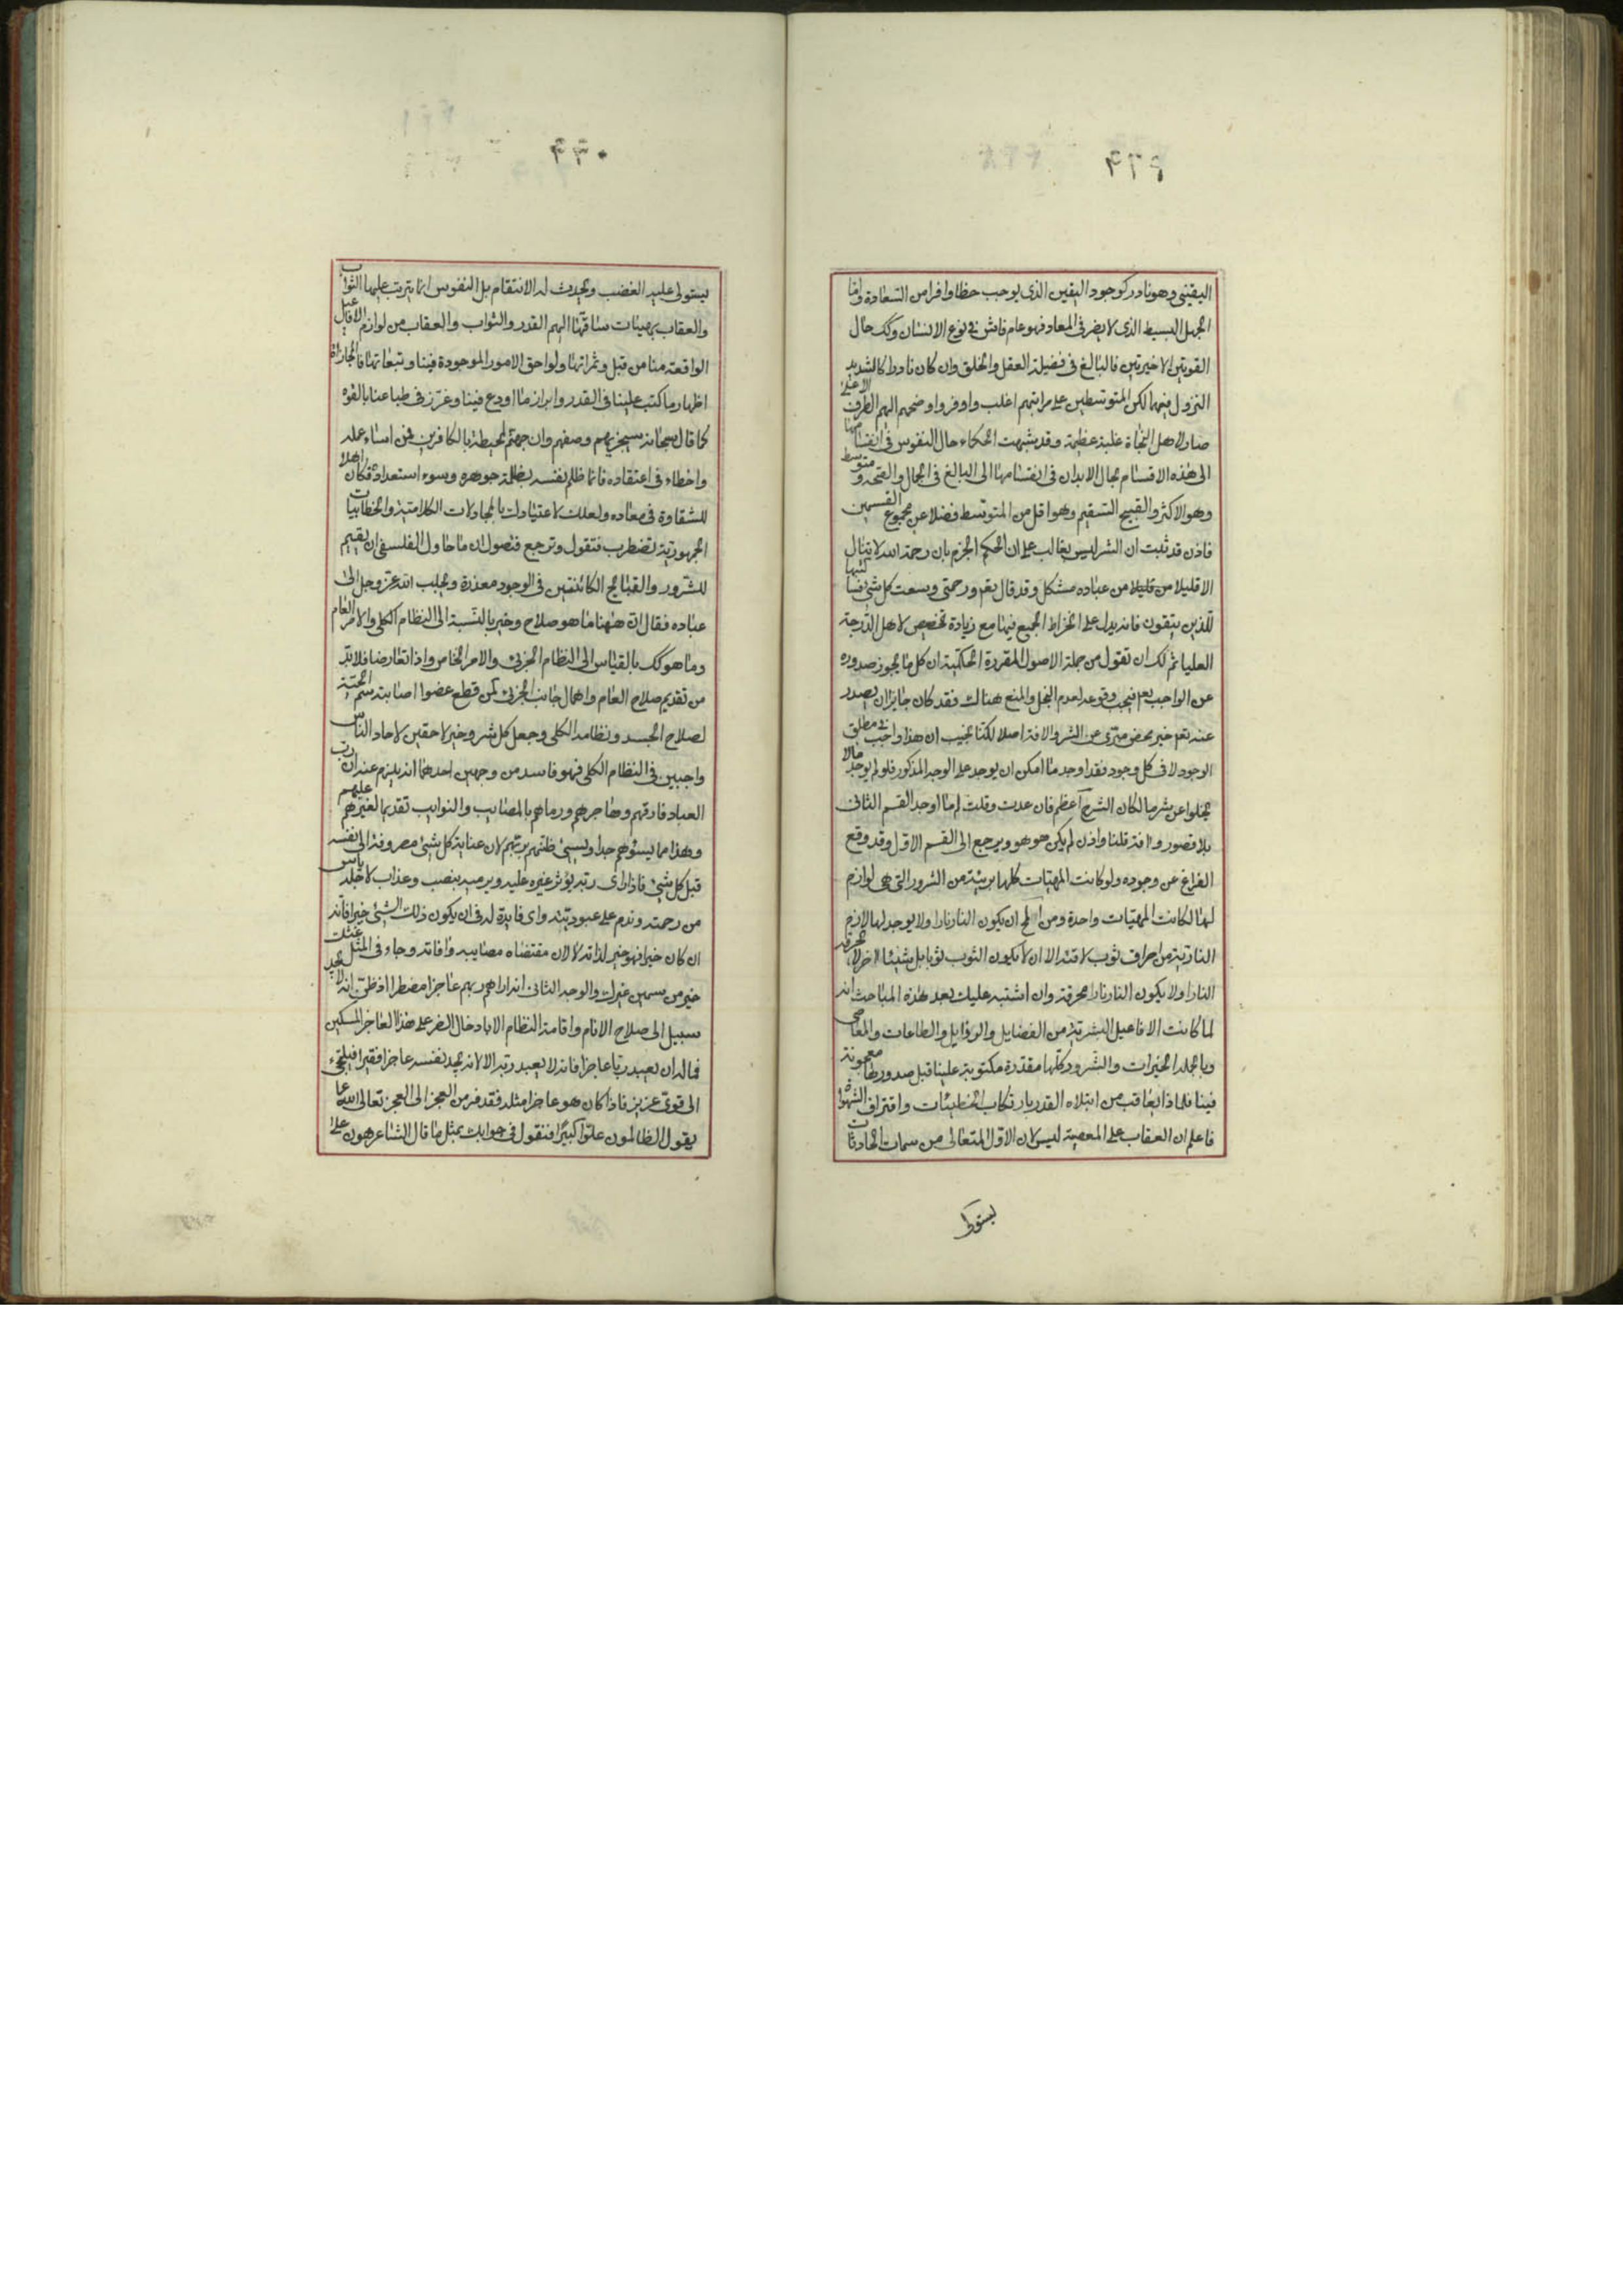 ٤٢٩
اليقينى وهو نادر كوجود اليقين الذى يوجب حظا وافرا من السعادة واما
الجهل البسيط الذى لا يضر فى المعاد فهو عام فاش فى نوع الانسان وكك حال
القوتين الاخيرتين فالبالغ فى فضيلة العقل والخلق وان كان نادرا كالشديد
النزول فيهما لكن المتوسطين على مراتبهم اغلب واوفر واذا ضمهم اليهم الطرف الاعلى
صار لاهل النجاة غلبة عظيمة وقد شبهت الحكماء حال النفوس فى انقسامها
الى هذه الاقسام بحال الابدان فى انقسامها الى البالغ فى الجمال والصحة ومتوسط
وهو الاكثر والقبيح السقيم وهو اقل من المتوسط فضلا عن مجموع القسمين
فاذن قد ثبت ان الشر ليس بغالب على ان الحكم الجزم بان رحمة الله لا ينال
الا قليلا من قليلا من عباده مشكل وقد قال تعم ورحمتى وسعت كل شئ فسا كتبها
للذين يتقون فانه يدل على انخراط الجميع فيها مع زيادة تخصيص لاهل الدرجة
العليا ثم لك ان تقول من جملة الاصول المقررة الحكمية ان كل ما يجوز صدوره
عن الواجب تعم فيجب وقوعه لعدم البخل والمنع هناك فقد كان جايزا ان يصدر
عنه تعم خير محض مبرى عن الشر والافة اصلا لكنا نجيب ان هذا واجب فى مطلق
الوجود لا فى كل وجود فقد اوجد ما امكن ان يوجد على الوجه المذكور فلو لم يوجد مالا
يخلوا عن شر ما لكان الشر ح اعظم فان عدت وقلت لم ما اوجد القسم الثانى
بلا قصور وافة قلنا واذن لم يكن هو هو ويرجع الى القسم الاول وقد وقع
الفراغ عن وجوده ولو كانت المهيات كلها بريئة من الشرور التى هى لوازم
لها لكانت المهيات واحدة ومن المح ان يكون النار نارا ولا يوجد لها لازم
النارية من احراق ثوب لاقته الا ان لا يكون الثوب ثوبا بل شيئا اخر لا محرقة
النار او لا يكون النار نارا محرقة وان اشتبه عليك بعد هذه المباحث انه
لما كانت الافاعيل البشرية من الفضايل والرذايل والطاعات والمعاصى
وبالجملة الخيرات والشرور كلها مقدرة مكتوبة علينا قبل صدورها معجونة
فينا فلماذا يعاقب من ابتلاه القدر بارتكاب الخطيئات واقتراف الشهوات
فاعلم ان العقاب على المعصية ليس لان الاول المتعالى من سمات الحادثات
يستولى
٤٣٠
يستولى عليه الغضب ويحدث له الانتقام بل النفوس انما يترتب عليها الثواب
والعقاب بهيئات ساقها اليهم القدر والثواب والعقاب من لوازم الافاعيل
الواقعة منا من قبل وثمراتها ولواحق الامور الموجودة فينا وتبعاتها فالمجازاة
اظهار ما كتب علينا فى القدر وابراز ما اودع فينا وغرز فى طباعنا بالقوه
كما قال سبحانه سيجزيهم وصفهم وان جهنم لمحيطة بالكافرين فمن اساء عمله
واخطاء فى اعتقاده فانما ظلم نفسه بظلمة جوهره وسوء استعداده فكان اهلا
للشقاوة فى معاده ولعلك لاعتيادك بالمجادلات الكلامية والخطابيات
الجمهورية تضطرب فتقول وترجع فتصول ان ما حاول الفلسفى ان يقيم
للشرور والقبائح الكائنتين فى الوجود معذرة ويجلب الله عز وجل الى
عباده فقال ان ههنا ما هو صلاح وخير بالنسبة الى النظام الكلى والامر العام
وما هو كك بالقياس الى النظام الجزئى والامر الخاص واذا تعارضا فلا بد
من تقديم صلاح العام واهمال جانب الجزئى كمن قطع عضوا اصابته سم الحية
لصلاح الجسد ونظامه الكلى وجعل كل شر وخير لاحقين لاحاد الناس
واجبين فى النظام الكلى فهو فاسد من وجهين احدهما انه يلزم عنه ان رب
العباد فارقهم وهاجرهم ورماهم بالمصايب والنوايب تقديما لغيرهم عليهم
وهذا مما يسؤهم جدا ويسيئ ظنهم بربهم لان عناية كل شئ مصروفة الى نفسه
قبل كل شئ فاذا راى ربه يؤثر غيره عليه ويرميه بنصب وعذاب لاجله ياس
من رحمته وندم على عبوديته واى فايدة له فى ان يكون ذلك الشئ خيرا فانه
ان كان خيرا فهو خير لذاته لا لان مقتضاه مصايبه وافاته وجاء فى المثل غثك
خير من سمين غيرك والوجه الثانى انه اراهم ربهم عاجزا مضطرا اذ ظن انه لا يجد
سبيل الى صلاح الانام واقامة النظام الا بادخال الضر على هذا العاجز المسكين
فما له ان يعبد ربا عاجزا فانه لا يعبد ربه الا لانه يجد نفسه عاجزا فقيرا فيلتجئ
الى قوى عزيز فاذا كان هو عاجزا مثله فقد فر من العجز الى العجز تعالى الله عما
يقول الظالمون علوا كبيرا فنقول فى جوابك بمثل ما قال الشاعر هون على